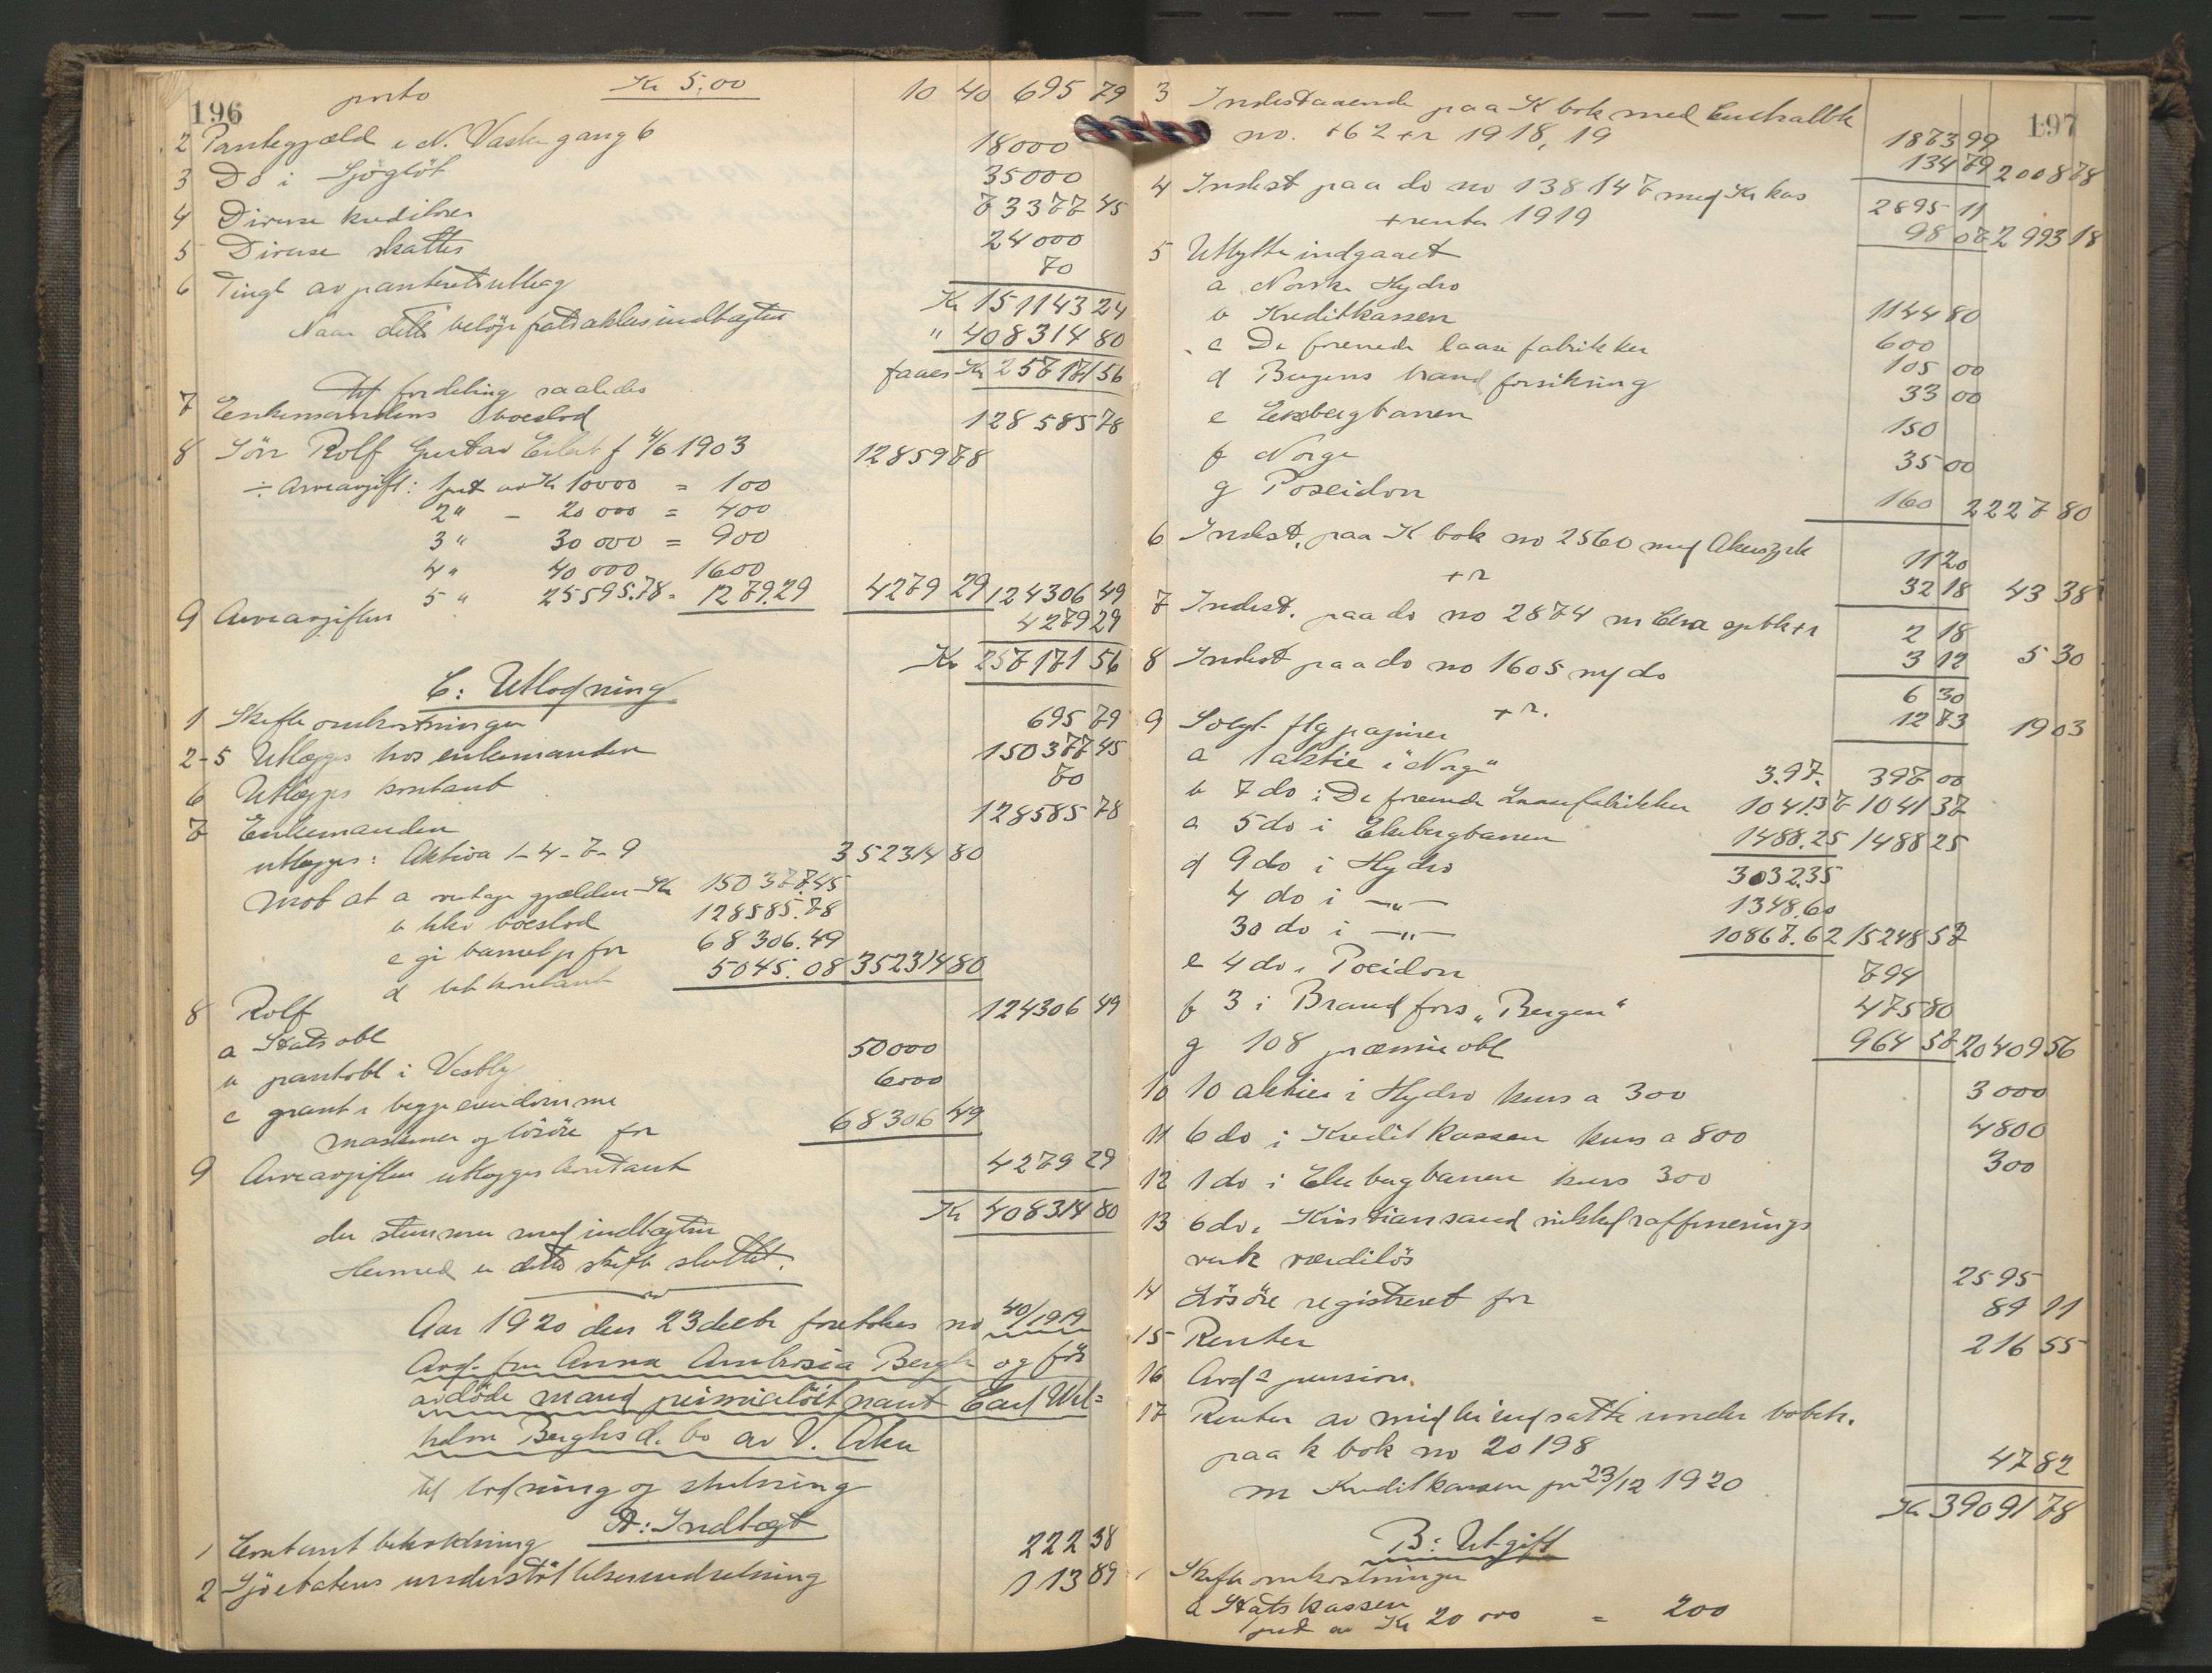 196
porto Kr 5,00 10 40 695 79
2 Pantegjæld i N. Vaskegang 6 18000
3 Do i Sjögløt 35000
4 Diverse kreditorer 73377 45
5 Diverse skatter 24000
6 Tingl av panteretsutlæg 70
Kr 151143 24
Naar dette beløp fratrækkes indtægten " 408314 80
faaes Kr 257171 56
til fordeling saaledes
7 Enkemandens boeslod 128585 78
8 Sön Rolf Gustav Eilert f 4/6 1903 128597 8
÷ Arveavgift: 1 pct av Kr 10000 = 100
2 " – 20 000 = 400
3 " 30 000 = 900
4 " 40 000 1600
5 " 25595.78 = 1279.29 4279 29 124306 49
9 Arveavgiften 4279 29
Kr 257171 56
C: Utlodning
1 Skifteomkostninger 695 79
2-5 Utlægges hos enkemanden 150377 45
6 Utlægges kontant 70
7 Enkemanden 128585 78
utlægges: Aktiva 1-4-7-9 352314 80
Mot at a overtage gjælden Kr 150377.45
b blir boeslod 128585.78
c gi pantobl for 68306.49
d bet kontant 5045.08 352314 80
8 Rolf 124306 49
a Statsobl 50000
b pantobl i Vestby 6000
c grant i begge eiendomme
maskiner og lösöre for 68306 49
9 Arveavgiften utlægges kontant 4279 29
Kr 408314 80
der stemmer med indtægten
Hermed er dette skifte sluttet.
Aar 1920 den 23 decbr foretokes no 40/1919
Avd. fru Anna Ambrosia Bergh og för
avdöde mand premierlöitnant Carl Wil=
helm Berghs d. bo av V. Aker
til lodning og slutning
A: Indtægt
1 Contant beholdning 222 38
2 Sjöetatens understöttelsesindretning 113 89
197
3 Indestaaende paa K bok med Centralbk
no. 162 + r 1918, 19 1873 99
134 79 2008 78
4 Indest paa do no 138147 med Kr kas 2895 11
+ renter 1919 98 07 2993 18
5 Utbytte indgaaet
a Norsk Hydro 1144 80
b Kreditkassen 600
c De forenede laasefabrikker 105 00
d Bergens brandforsikring 33 00
e Ekebergbanen 150
f Norge 35 00
g Poseidon 160 2227 80
6 Indest. paa K bok no 2560 med Akers spk 11 20
+ r 32 18 43 38
7 Indest. paa do no 2874 m Chra spbk + r 2 18
3 12 5 30
8 Indest paa do no 1605 med do 6 30
+ r. 12 73 19 03
9 Solgt flg papirer
a 1 aktie i "Norge" 3.97. 397 00
b 7 do i De forenede Laasefabrikker 1041.37 1041 37
a 5 do i Ekebergbanen 1488.25 1488 25
d 9 do i Hydro 3032.35
4 do i —"— 1348.60
30 do i —"— 10867.62 15248 57
e 4 do i Poseidon 794
f 3 i Brandfors "Bergen" 475 80
g 108 præmieobl 964 57 20409 56
10 10 aktier i Hydro kurs a 300 3000
11 6 do i Kreditkassen kurs a 800 4800
12 1 do i Ekebergbanen kurs 300 300
13 6 do i Kristiansand nikkelraffinerings
verk værdilös
14 Lösöre registreret for 2595
15 Renter 89 11
16 Avd s pension. 216 55
17 Renter av midler indsatte under bobeh.
paa k bok no 20198
m Kreditkassen pr 23/12 1920 47 82
Kr 39091 78
B: Utgift
1 Skifteomkostninger
a Statskassen
1 pct av Kr 20 000 = 200